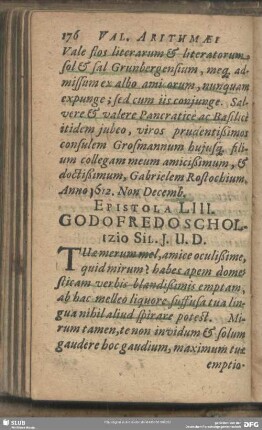 176 VAL. ARITHMÆI
Vale flos literarum & literatorum,
sol & sal Grunbergensium, neq; ad-
missum ex albo ami orum, nunquam
expunge; sed cum iis conjunge. Sal-
vere & valere Pancratice ac Basilice
itidem jubeo, viros prudentissimos
consulem Grosmannum hujusq; fi-
lium collegam meum amicissimum, &
doctissimum, Gabrielem Rostochium,
Anno 1612. Non Decemb.
EPISTOLA LIII.
GODOFREDO SCHOL-
tzio Sil. J. U. D.
Tuæ merum mel, amice oculissime,
quid mirum? habes apem dome
sticam verbis blandissimis emptam,
ab hac melleo liquore suffusa tua lin-
gua nihil aliud spirare potest. Mi-
rum tamen, te non invidum & solum
gaudere hoc gaudium, maximum tuæ
emptio-
SLUB
DFG